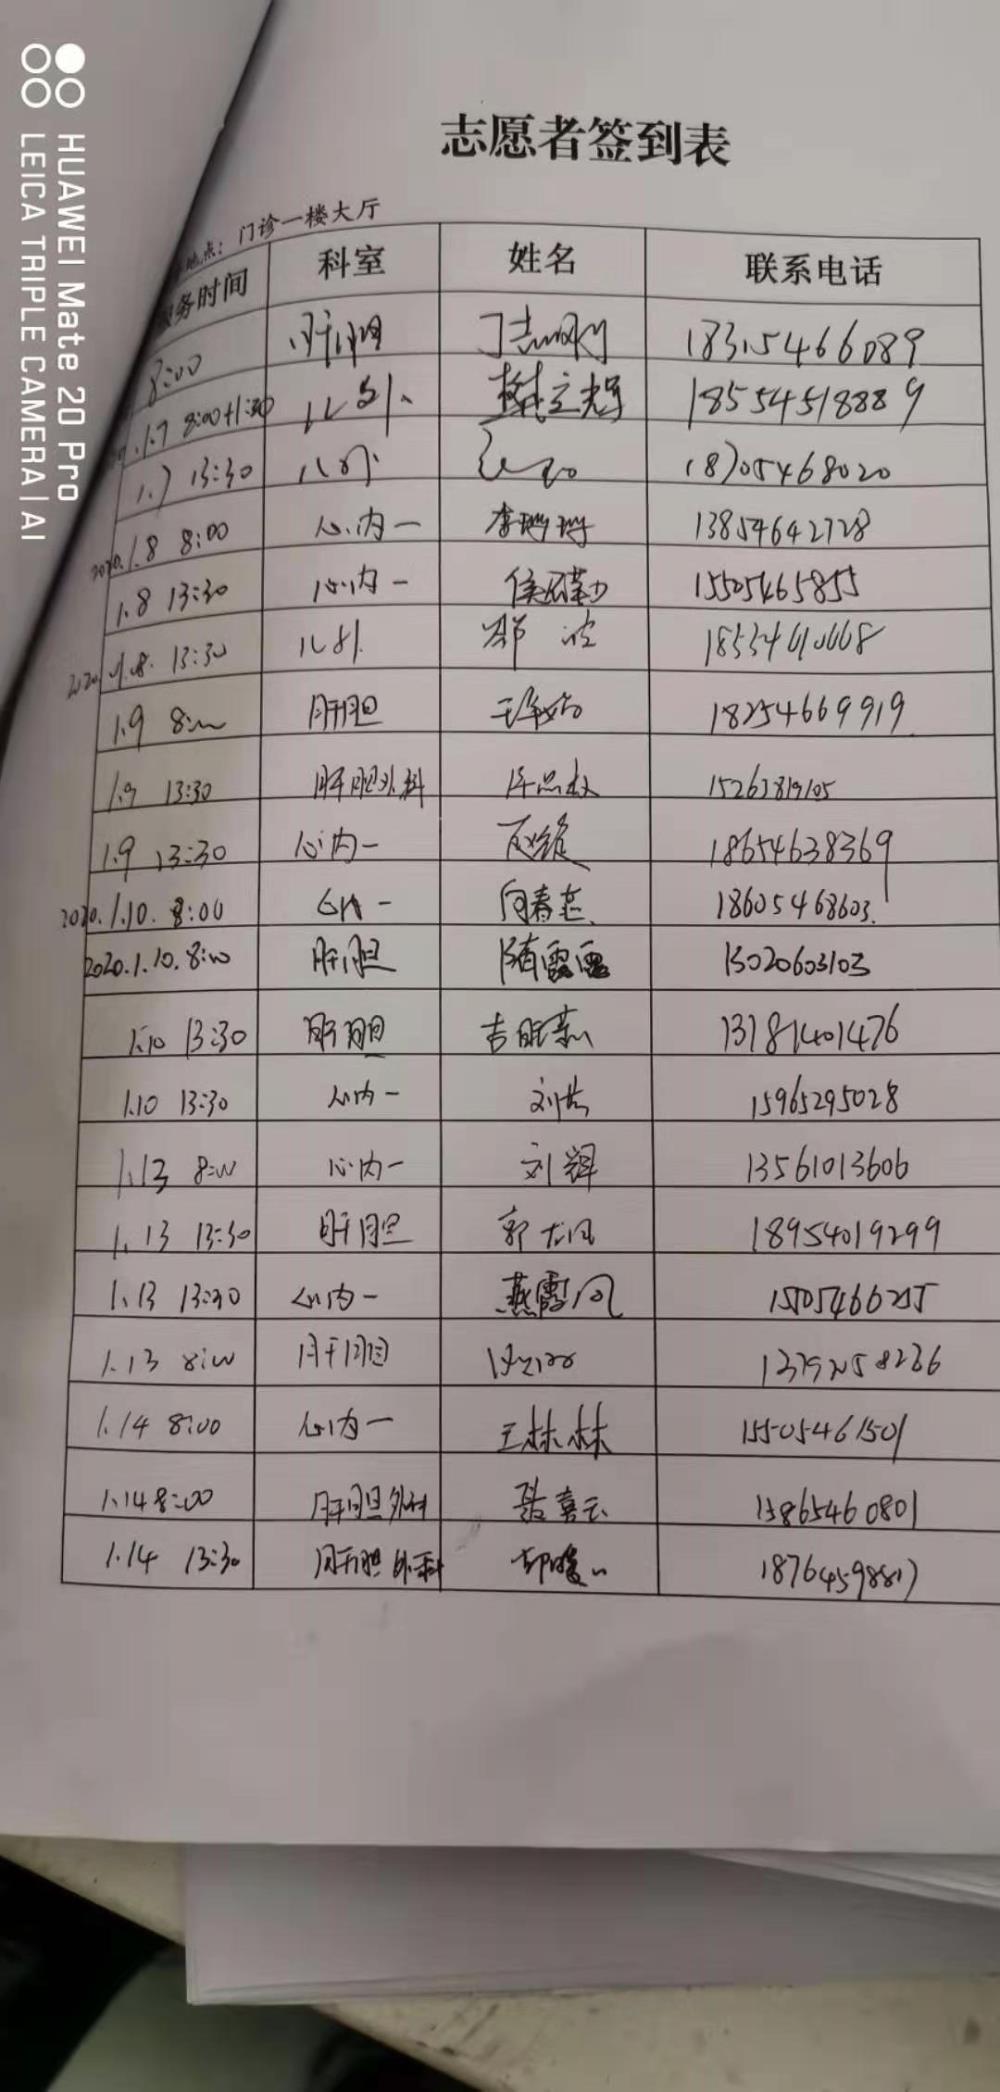 HUAWEI Mate 20 Pro
LEICA TRIPLE CAMERA | AI
志愿者签到表
地点：门诊一楼大厅
服务时间 科室 姓名 联系电话
8:00 肝胆 丁志刚 18315466089
1.7 8:00 儿外 18554518889
1.7 13:30 儿外 18705468020
2020.1.8 8:00 心内一 李珊珊 13854642728
1.8 13:30 心内一 15505465855
2020.1.8. 13:30 儿外 郑波
1.9 8:00 肝胆 18254669919
1.9 13:30 肝胆外科 15263819105
1.9 13:30 心内一 18654638369
2020.1.10. 8:00 心内一 向春燕 18605468603.
2020.1.10. 8:00 肝胆 隋霞 15020603103
1.10 13:30 肝胆 13181401476
1.10 13:30 心内一 刘岩 15965295028
1.13 8:00 心内一 刘辉 13561013606
1.13 13:30 肝胆 郭 18954019299
1.13 13:30 心内一 燕霞 1505466255
1.13 8:00 肝胆
1.14 8:00 心内一 王林林 15505461501
1.14 8:00 肝胆外科 聂喜云 13865460801
1.14 13:30 肝胆外科 18764598817